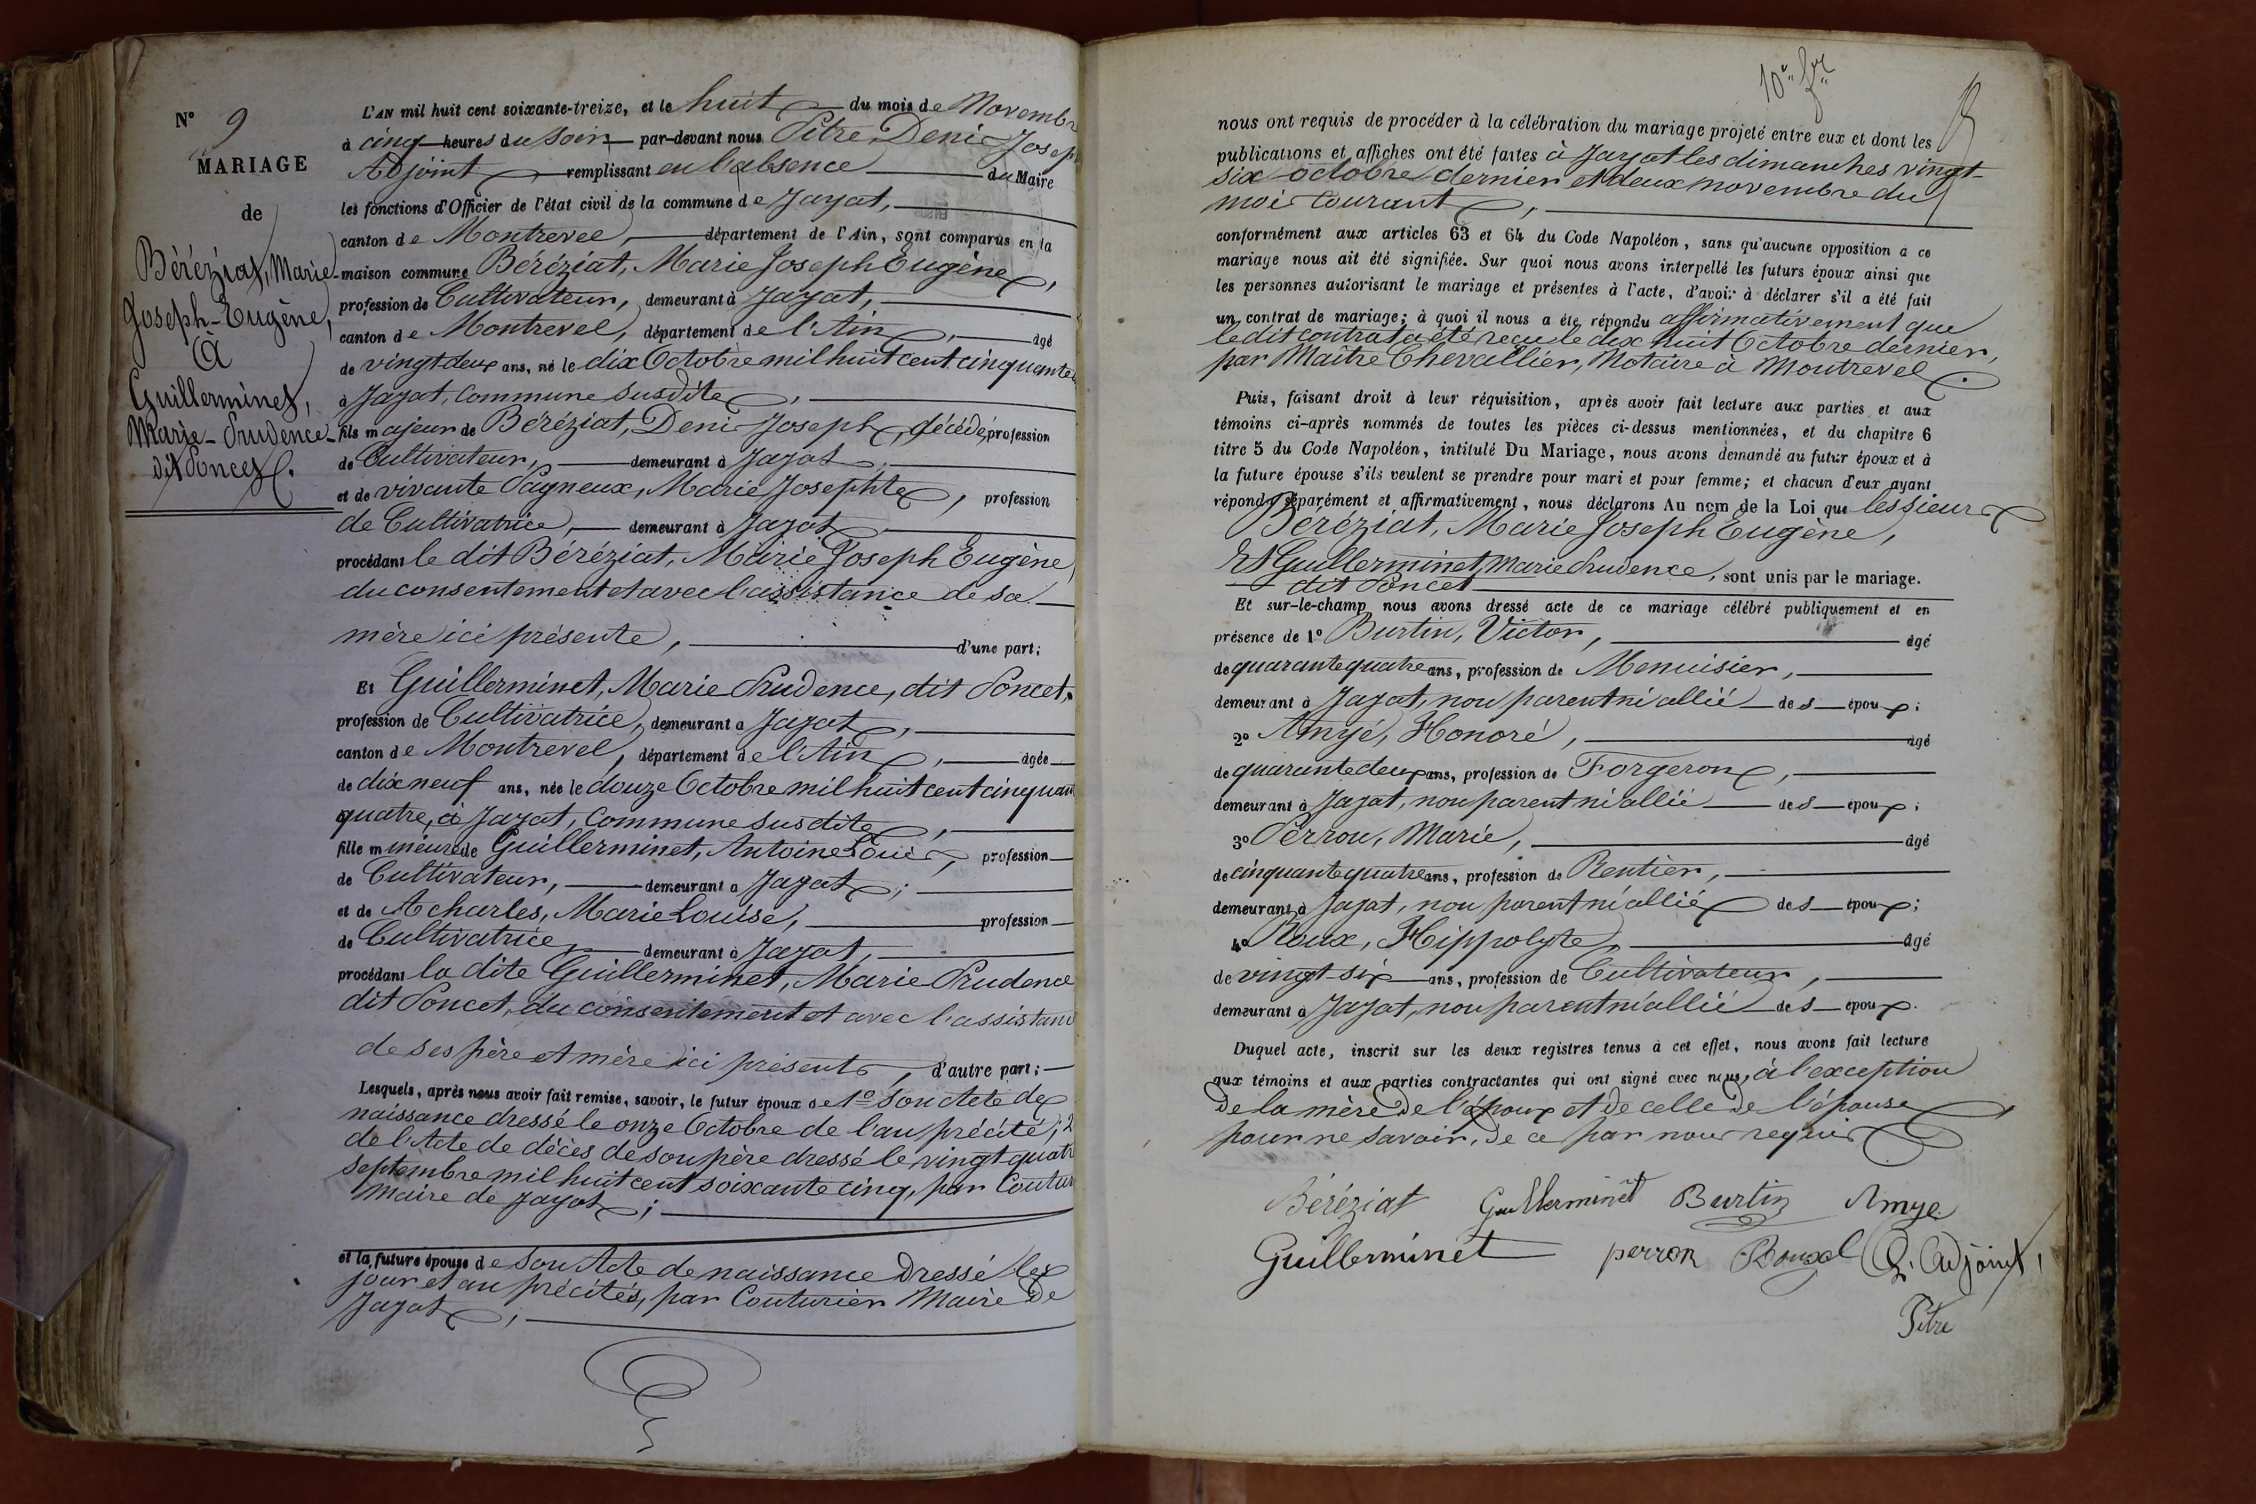 N° 9
MARIAGE
de
Béréziat, Marie-
Joseph-Eugène,
à
Guillerminet,
Marie-Prudence
dit Poncet.
L'AN mil huit cent soixante-treize, et le huit du mois de Novembre
à cinq heures du soir par-devant nous Pitre, Denis Joseph
Adjoint remplissant en l'absence du Maire
les fonctions d'Officier de l'état civil de la commune de Jayat,
canton de Montrevel, département de l'Ain, sont comparus en la
maison commune Béréziat, Marie Joseph Eugène,
profession de Cultivateur, demeurant à Jayat,
canton de Montrevel, département de l'Ain, âgé
de vingt deux ans, né le dix Octobre mil huit cent cinquante
à Jayat, Commune susdite,
fils majeur de Béréziat, Denis Joseph, décédé, profession
de Cultivateur, demeurant à Jayat,
et de vivante Pagneux, Marie Josephte, profession
de Cultivatrice, demeurant à Jayat
procédant le dit Béréziat, Marie Joseph Eugène,
du consentement et avec l'assistance de sa
mère ici présente, d'une part;
Et Guillerminet, Marie Prudence, dit Poncet,
profession de Cultivatrice, demeurant à Jayat,
canton de Montrevel, département de l'Ain, âgée
de dix neuf ans, née le douze Octobre mil huit cent cinquan
quatre, à Jayat, Commune susdite,
fille mineure de Guillerminet, Antoine Louis, profession
de Cultivateur, demeurant à Jayat;
et de Acharles, Marie Louise, profession
de Cultivatrice, demeurant à Jayat,
procédant la dite Guillerminet, Marie Prudence
dit Poncet, du consentement et avec l'assistance
de ses père et mère ici présents, d'autre part;
Lesquels, après nous avoir fait remise, savoir, le futur époux de 1° Son Acte de
naissance dressé le onze Octobre de l'an précité; 2
de l'Acte de décès de son père dressé le vingt quatre
septembre mil huit cent soixante cinq, par Coutur
Maire de Jayat;
et la future épouse de Son Acte de naissance dressé les
jour et an précités, par Couturier Maire de
Jayat;
10e fr
nous ont requis de procéder à la célébration du mariage projeté entre eux et dont les
publications et affiches ont été faites à Jayat les dimanches vingt-
six octobre dernier et deux novembre du
mois courant,
conformément aux articles 63 et 64 du Code Napoléon, sans qu'aucune opposition à ce
mariage nous ait été signifiée. Sur quoi nous avons interpellé les futurs époux ainsi que
les personnes autorisant le mariage et présentes à l'acte, d'avoir à déclarer s'il a été fait
un contrat de mariage; à quoi il nous a été répondu affirmativement que
le dit contrat a été reçu le dix huit Octobre dernier,
par Maître Chevallier, Notaire à Montrevel.
Puis, faisant droit à leur réquisition, après avoir fait lecture aux parties et aux
témoins ci-après nommés de toutes les pièces ci-dessus mentionnées, et du chapitre 6
titre 5 du Code Napoléon, intitulé Du Mariage, nous avons demandé au futur époux et à
la future épouse s'ils veulent se prendre pour mari et pour femme; et chacun d'eux ayant
répondu séparément et affirmativement, nous déclarons Au nom de la Loi que les sieurs
Béréziat, Marie Joseph Eugène,
Et Guillerminet, Marie Prudence, sont unis par le mariage.
dit Poncet
Et sur-le-champ nous avons dressé acte de ce mariage célébré publiquement et en
présence de 1° Burtin, Victor, âgé
de quarante quatre ans, profession de Menuisier,
demeurant à Jayat, non parent ni allié des époux;
2° Amyé, Honoré, âgé
de quarante deux ans, profession de Forgeron,
demeurant à Jayat, non parent ni allié des époux;
3° Perron, Marie, âgé
de cinquante quatre ans, profession de Rentier,
demeurant à Jayat, non parent ni allié des époux;
4° Roux, Hippolyte, âgé
de vingt six ans, profession de Cultivateur,
demeurant à Jayat, non parent ni allié des époux.
Duquel acte, inscrit sur les deux registres tenus à cet effet, nous avons fait lecture
aux témoins et aux parties contractantes qui ont signé avec nous, à l'exception
de la mère de l'époux et de celle de l'épouse
pour ne savoir, de ce par nous requis
Béréziat Guillerminet Burtin Amye
Guillerminet perron Rouxel L'Adjoint,
Pitre